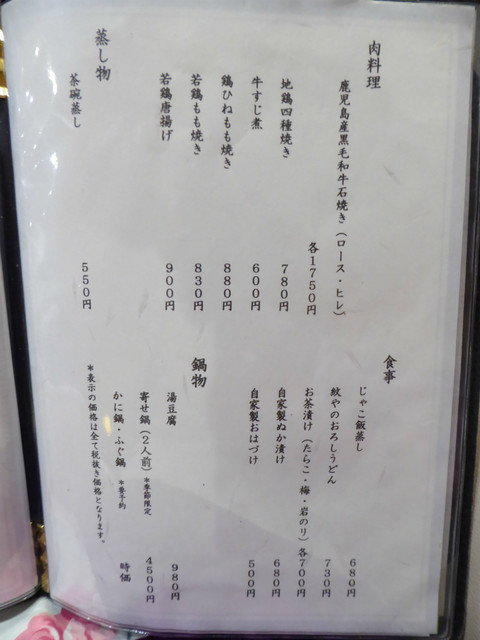 肉料理
鹿児島産黒毛和牛石焼き（ロース・ヒレ）
各1750円
地鶏四種焼き 780円
牛すじ煮 600円
鶏ひねもも焼き 880円
若鶏もも焼き 830円
若鶏唐揚げ 900円
蒸し物
茶碗蒸し 550円
食事
じゃこ飯蒸し 680円
紋やのおろしうどん 730円
お茶漬け（たらこ・梅・岩のり）各700円
自家製ぬか漬け 680円
自家製おはづけ 500円
鍋物
湯豆腐 980円
寄せ鍋（2人前）＊季節限定 4500円
かに鍋・ふぐ鍋 ＊要予約 時価
＊表示の価格は全て税抜き価格となります。